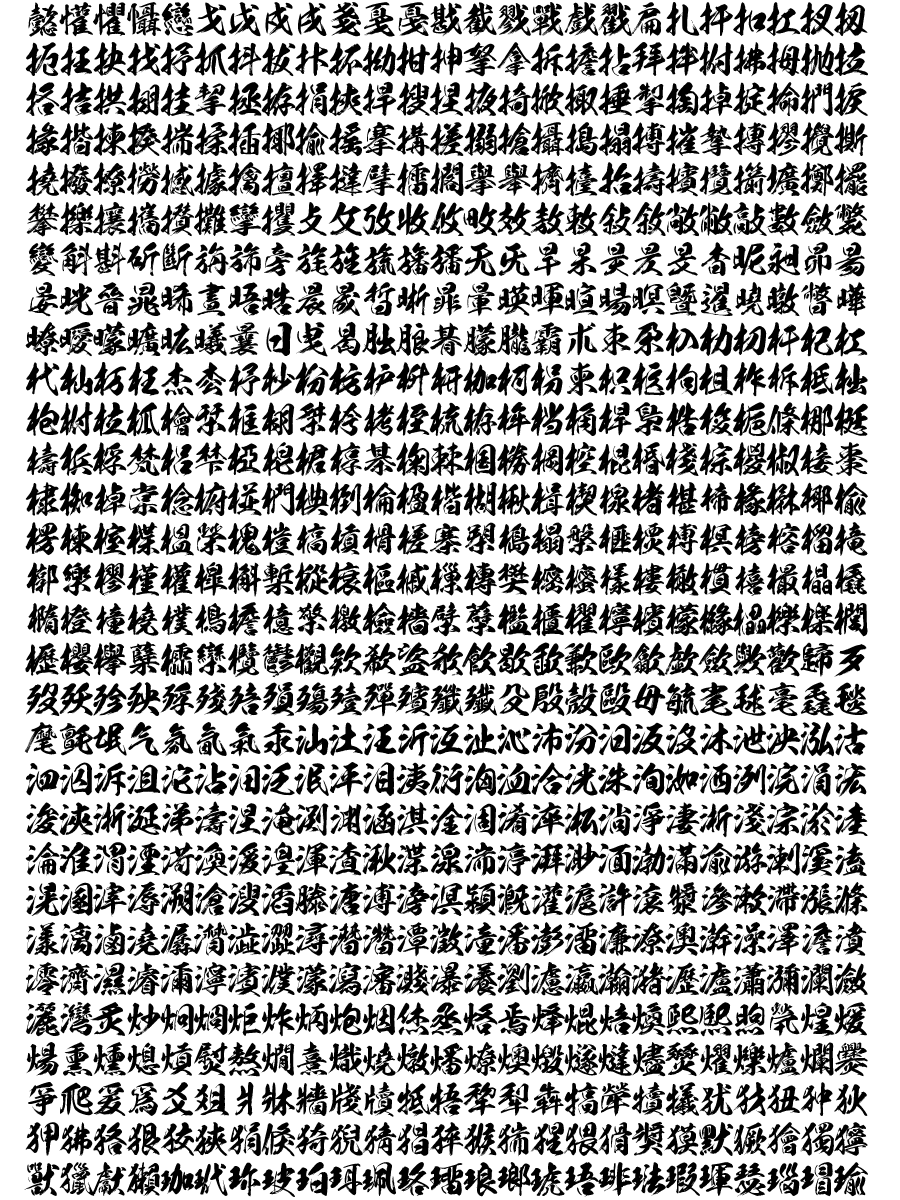 懿懽懼懾戀戈戉戍戌戔戛戞戡截戮戰戲戳扁扎扞扣扛扠扨
扼抂抉找抒抓抖拔抃抔拗拑抻拏拿拆擔拈拜拌拊拂拇抛拉
挌拮拱挧挂挈拯拵捐挾捍搜捏掖掎掀掫捶掣掏掉掟掵捫捩
掾揩揀揆揣揉插揶揄搖搴搆搓搦搶攝搗搨搏摧摯摶摎攪撕
撓撥撩撈撼據擒擅擇撻擘擂擱擧舉擠擡抬擣擯攬擶擴擲擺
攀擽攘攜攅攤攣攫攴攵攷收攸畋效敖敕敍敘敞敝敲數斂斃
變斛斟斫斷旃旆旁旄旌旒旛旙无旡旱杲昊昃旻杳昵昶昴昜
晏晄晉晁晞晝晤晧晨晟晢晰暃暈暎暉暄暘暝曁暹曉暾暼曄
暸曖曚曠昿曦曩曰曳曷朏朖朞朦朧霸朮朿朶杁朸朷杆杞杠
杙杣杤枉杰枩杼杪枌枋枦枡枅枷柯枴柬枳柩枸柤柞柝柢柮
枹柎柆柧檜栞框栩桀桍栲桎梳栫桙档桷桿梟梏梭梔條梛梃
檮梹桴梵梠梺椏梍桾椁棊椈棘椢椦棡椌棍棔棧棕椶椒椄棗
棣椥棹棠棯椨椪椚椣椡棆楹楷楜楸楫楔楾楮椹楴椽楙椰楡
楞楝榁楪榲榮槐榿槁槓榾槎寨槊槝榻槃榧樮榑榠榜榕榴槞
槨樂樛槿權槹槲槧樅榱樞槭樔槫樊樒櫁樣樓橄樌橲樶橸橇
橢橙橦橈樸樢檐檍檠檄檢檣檗蘗檻櫃櫂檸檳檬櫞櫑櫟檪櫚
櫪櫻欅蘖櫺欒欖鬱欟欸欷盜欹飮歇歃歉歐歙歔歛歟歡歸歹
歿殀殄殃殍殘殕殞殤殪殫殯殲殱殳殷殼毆毋毓毟毬毫毳毯
麾氈氓气氛氤氣汞汕汢汪沂沍沚沁沛汾汨汳沒沐泄泱泓沽
泗泅泝沮沱沾沺泛泯泙泪洟衍洶洫洽洸洙洵洳洒洌浣涓浤
浚浹浙涎涕濤涅淹渕渊涵淇淦涸淆淬淞淌淨淒淅淺淙淤淕
淪淮渭湮渮渙湲湟渾渣湫渫湶湍渟湃渺湎渤滿渝游溂溪溘
滉溷滓溽溯滄溲滔滕溏溥滂溟潁漑灌滬滸滾漿滲漱滯漲滌
漾漓滷澆潺潸澁澀潯潛濳潭澂潼潘澎澑濂潦澳澣澡澤澹濆
澪濟濕濬濔濘濱濮濛瀉瀋濺瀑瀁瀏濾瀛瀚潴瀝瀘瀟瀰瀾瀲
灑灣炙炒炯烱炬炸炳炮烟烋烝烙焉烽焜焙煥煕熈煦煢煌煖
煬熏燻熄熕熨熬燗熹熾燒燉燔燎燠燬燧燵燼燹燿爍爐爛爨
爭爬爰爲爻爼爿牀牆牋牘牴牾犂犁犇犒犖犢犧犹犲狃狆狄
狎狒狢狠狡狹狷倏猗猊猜猖猝猴猯猩猥猾獎獏默獗獪獨獰
獸獵獻獺珈玳珎玻珀珥珮珞璢琅瑯琥珸琲琺瑕琿瑟瑙瑁瑜